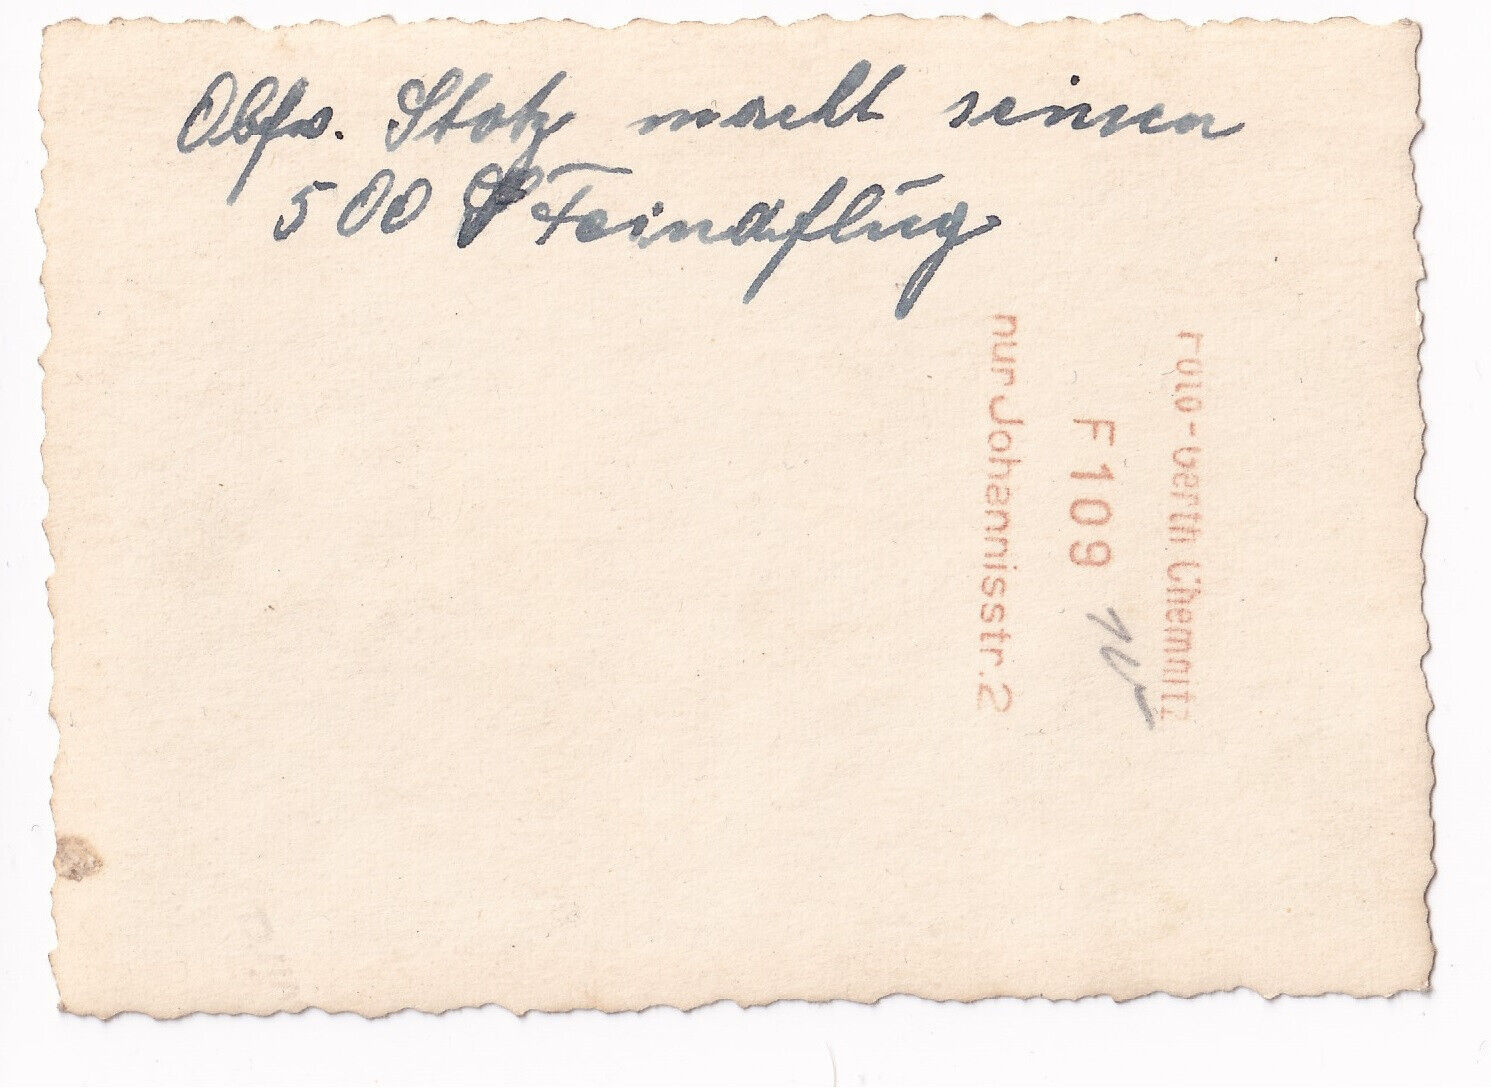 Obfw. Stotz macht seinen
500 Feindflug
Foto-Gerth Chemnitz
F109
nur Johannisstr.2